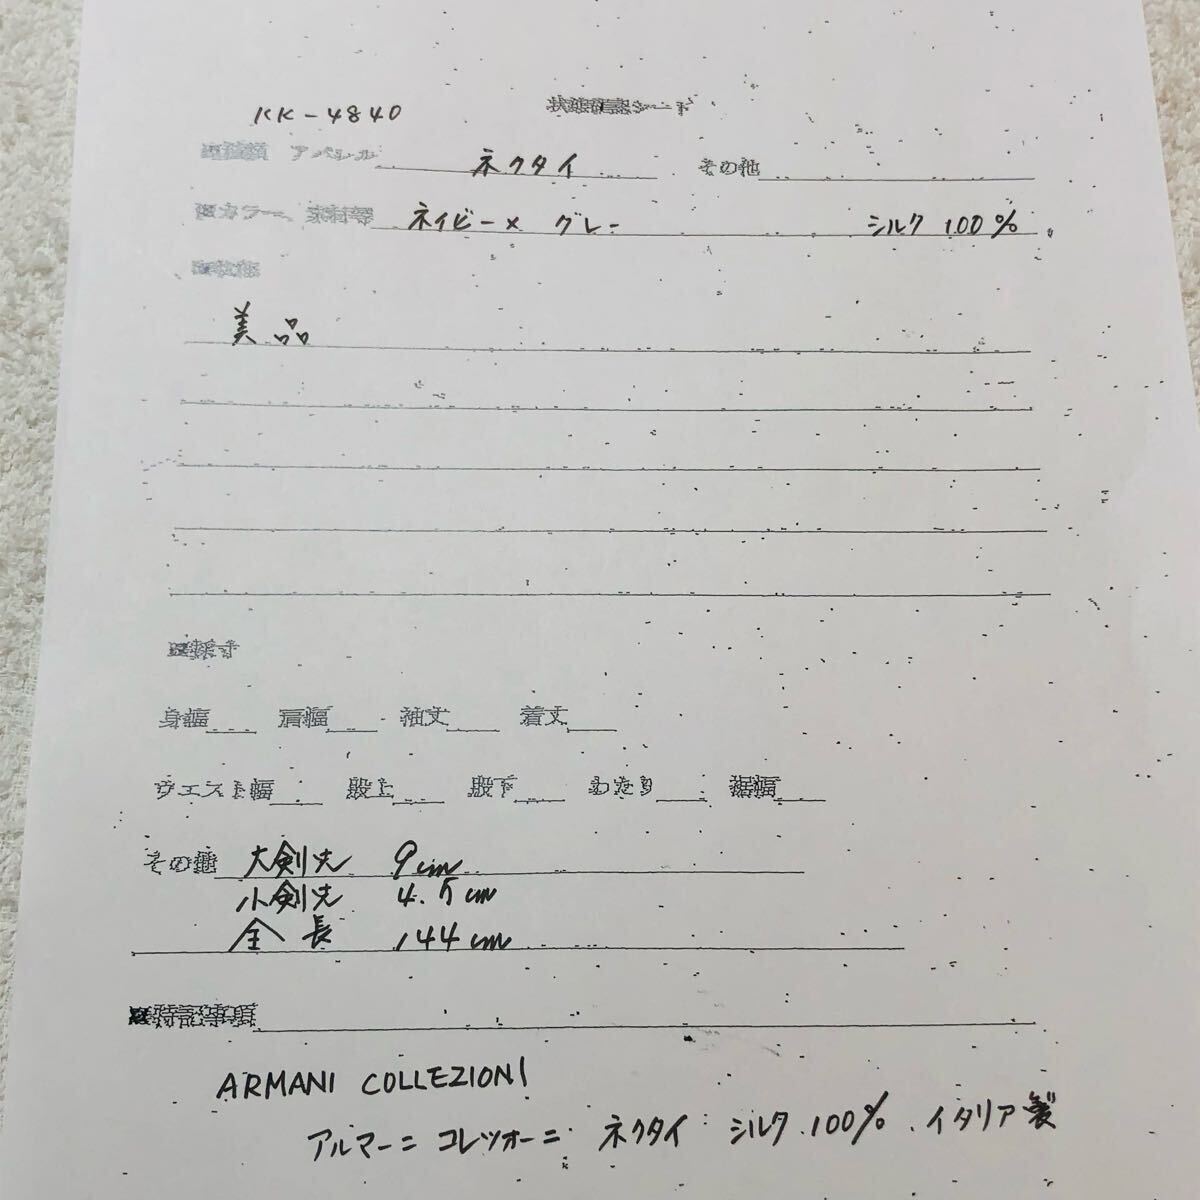 KK-4840
状態確認シート
■種類 アパレル ネクタイ その他
■カラー、素材等 ネイビー× グレー シルク 100%
■状態
美品
■採寸
身幅 肩幅 袖丈 着丈
ウエスト幅 股上 股下 わたり 裾幅
その他 大剣先 9cm
小剣先 4.5cm
全長 144cm
■特記事項
ARMANI COLLEZIONI
アルマーニ コレツォーニ ネクタイ シルク 100% イタリア製